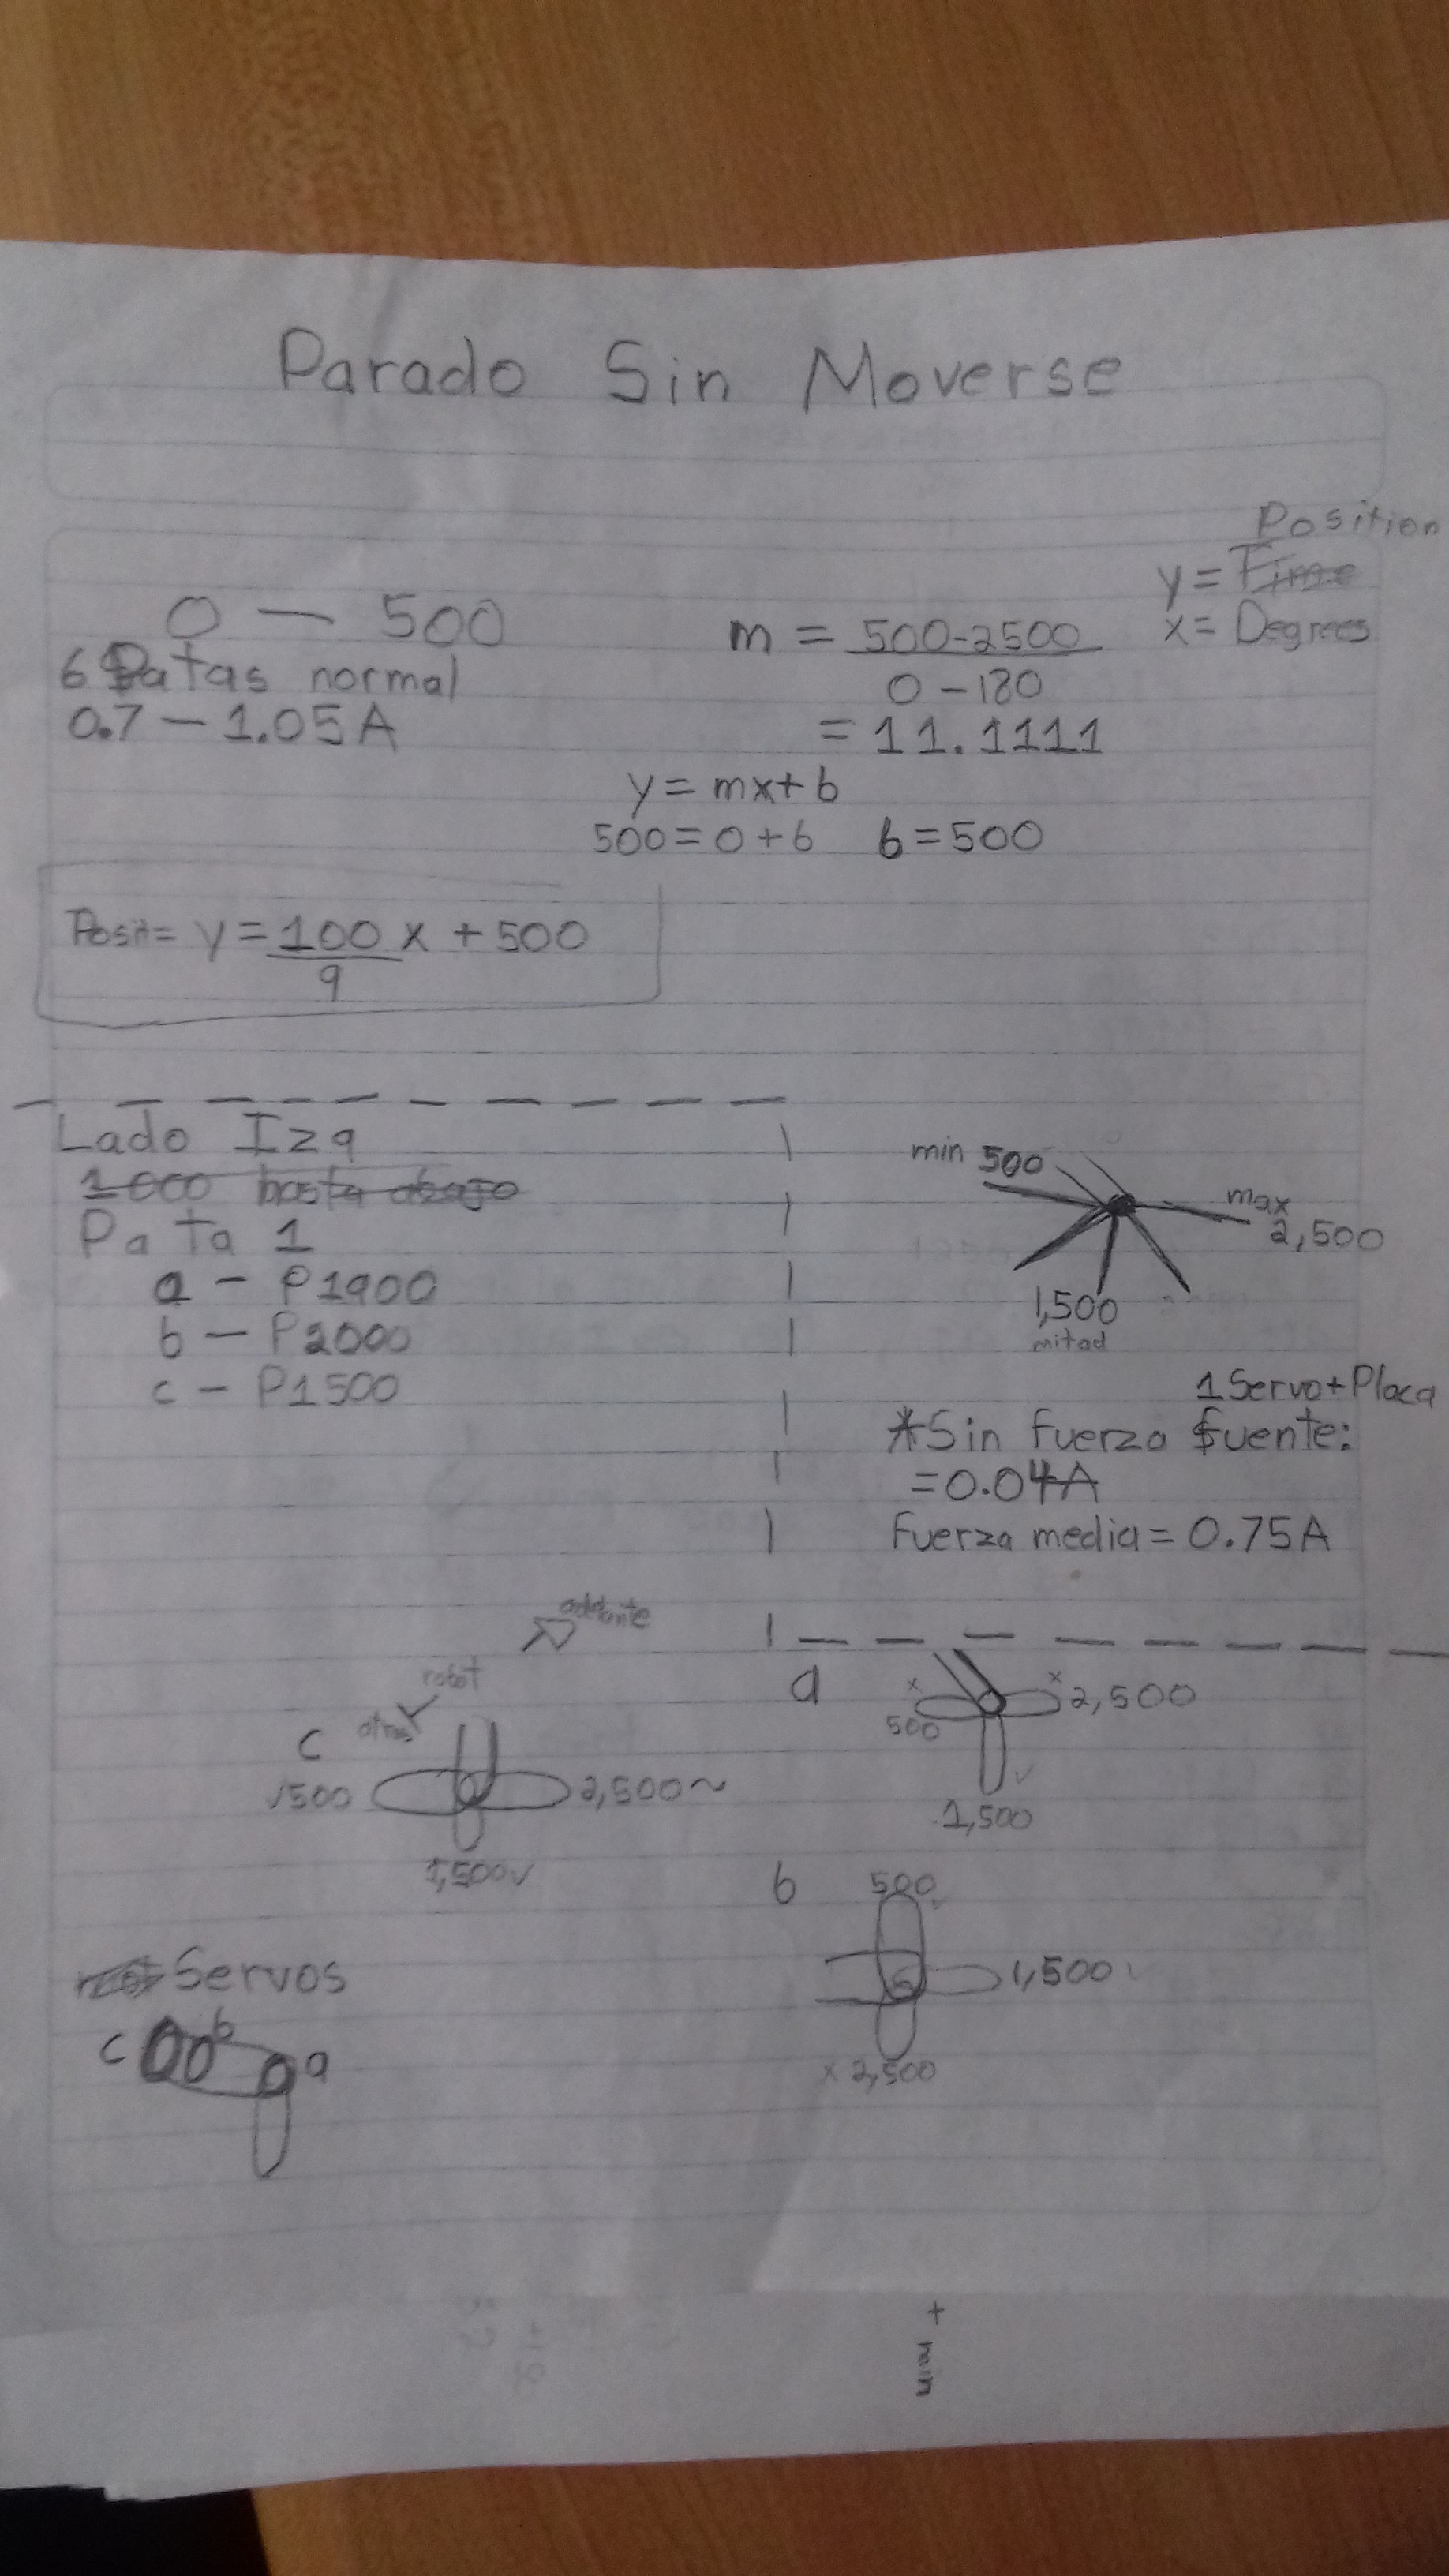 Parado Sin Moverse
Position
y = Time
x = Degrees
0 — 500
6 Patas normal
0.7 — 1.05A
m = 500-2500
0 - 180
= 11.1111
y = mx + b
500 = 0 + b b = 500
Posit = y = 100 x + 500
9
Lado Izq
1000 hasta abajo
Pata 1
a - P1900
b - P2000
c - P1500
min 500
max
2,500
1,500
mitad
1 Servo + Placa
*Sin fuerza fuente:
= 0.04A
Fuerza media = 0.75A
adelante
robot
atras
c
√500
2,500~
1,500✓
a
x
x
500
2,500
✓
1,500
b
500
✓
1,500
x 2,500
Servos
c
b
a
+
min